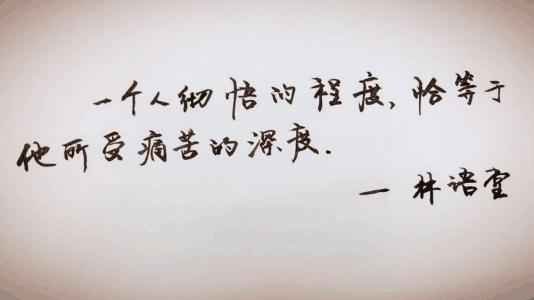 一个人彻悟的程度,恰等于
他所受痛苦的深度.
— 林语堂